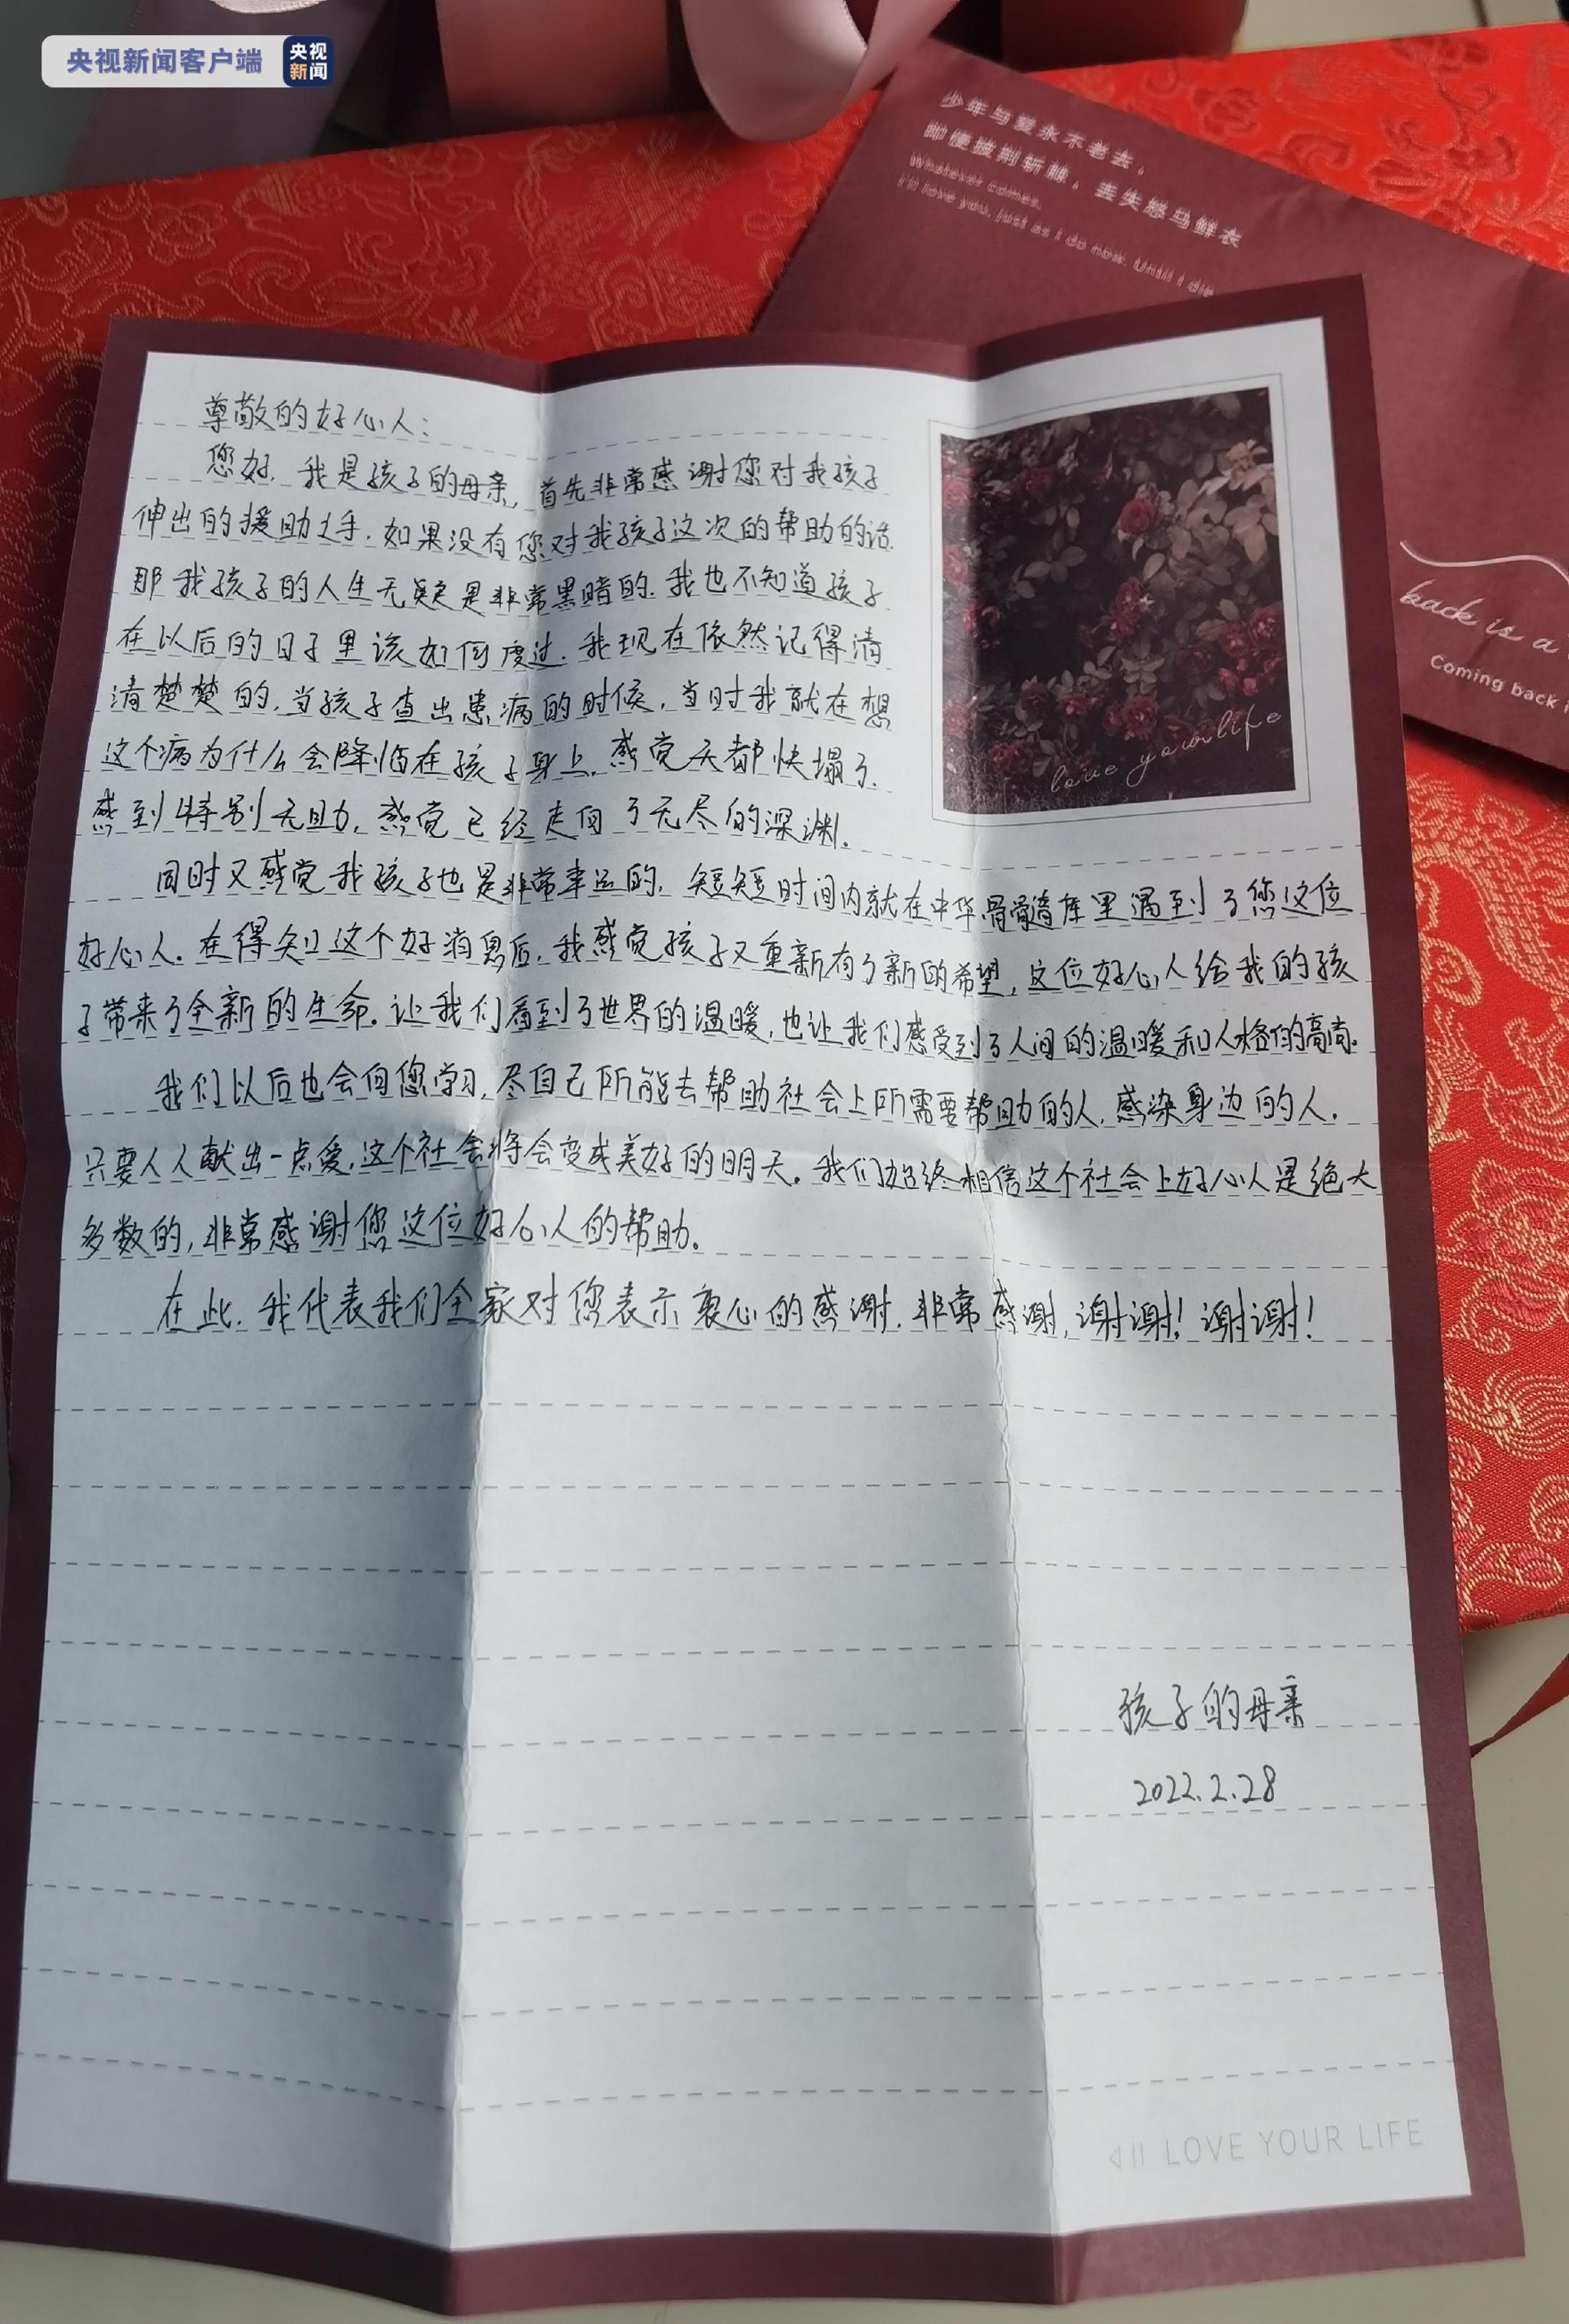 央视新闻客户端
央视
新闻
少年与爱永不老去，
即便披荆斩棘，丢失怒马鲜衣
Whatever comes,
I'll love you, just as I do now. Until I die
back is a
Coming back i
尊敬的好心人：
您好，我是孩子的母亲，首先非常感谢您对我孩子
伸出的援助之手，如果没有您对我孩子这次的帮助的话，
那我孩子的人生无疑是非常黑暗的，我也不知道孩子
在以后的日子里该如何度过，我现在依然记得清
清楚楚的，当孩子查出患病的时候，当时我就在想
这个病为什么会降临在孩子身上，感觉天都快塌了，
感到特别无助，感觉已经走向了无尽的深渊。
love your life
同时又感觉我孩子也是非常幸运的，短短时间内就在中华骨髓库里遇到了您这位
好心人。在得知这个好消息后，我感觉孩子又重新有了新的希望，这位好心人给我的孩
子带来了全新的生命。让我们看到了世界的温暖，也让我们感受到了人间的温暖和人格的高尚。
我们以后也会向您学习，尽自己所能去帮助社会上所需要帮助的人，感染身边的人。
只要人人献出一点爱，这个社会将会变成美好的明天。我们始终相信这个社会上好心人是绝大
多数的，非常感谢您这位好心人的帮助。
在此，我代表我们全家对您表示衷心的感谢，非常感谢，谢谢！谢谢！
孩子的母亲
2022.2.28
LOVE YOUR LIFE